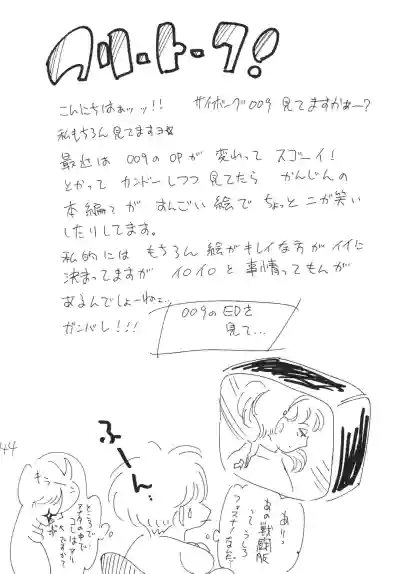 フリートーク!
こんにちはぁッッ!! サイボーグ009 見てますかぁー?
私もちろん見てますヨ☆
最近は 009の OPが 変わって スゴーイ!
とかって カンドーしつつ 見てたら かんじんの
本編が すんごい絵で ちょっと ニガ笑い
したりしてます。
私的には もちろん 絵がキレイな方が イイに
決まってますが イロイロと 事情ってもんが
あるんでしょーねぇ…
ガンバレ!!!
009のEDを
見て…
ふーん。
ありっ
あの戦闘服
って うしろ
ファスナーなんだ
キラーン
ところで
アナタの中で
コレはアリ
ですか?
44